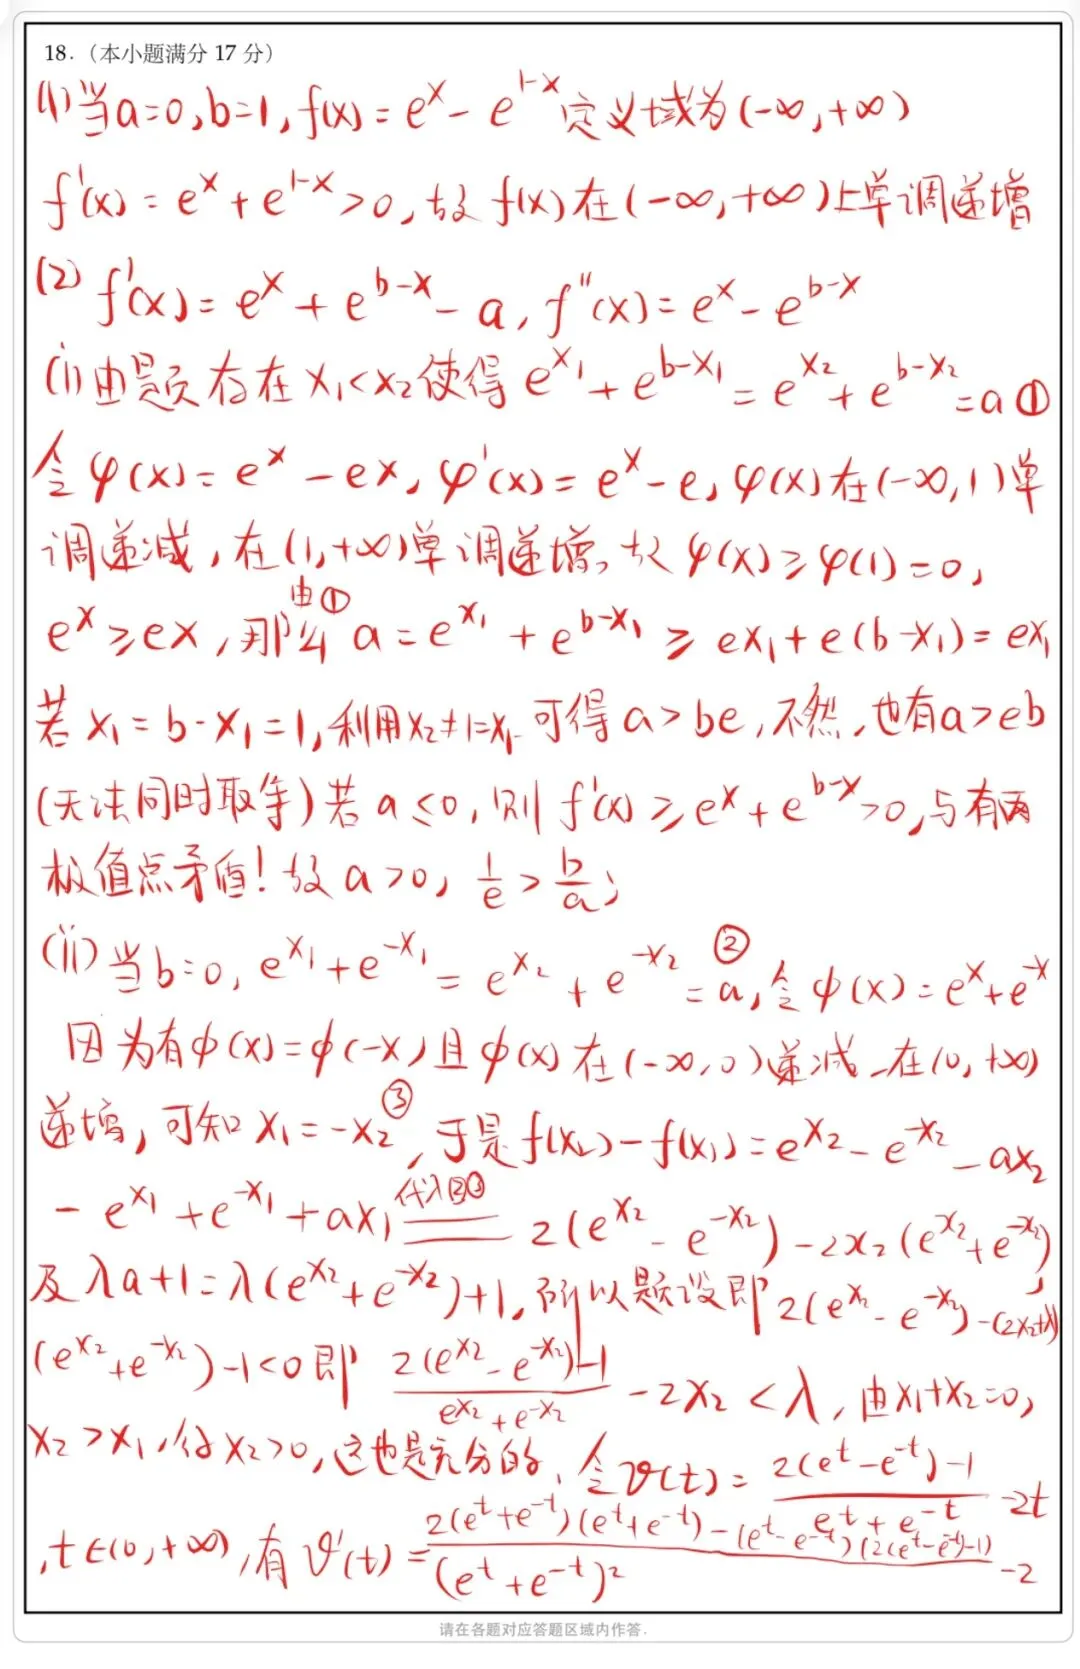 18.（本小题满分 17 分）
(1) 当a=0,b=1, f(x)=e^x-e^{1-x}定义域为(-∞,+∞)
f'(x)=e^x+e^{1-x}>0,故f(x)在(-∞,+∞)上单调递增
(2) f'(x)=e^x+e^{b-x}-a, f''(x)=e^x-e^{b-x}
(i) 由题页存在x₁<x₂使得e^{x₁}+e^{b-x₁}=e^{x₂}+e^{b-x₂}=a①
令φ(x)=e^x-ex,φ'(x)=e^x-e,φ(x)在(-∞,1)单
调递减,在(1,+∞)单调递增。故φ(x)≥φ(1)=0,
e^x≥ex,那么由① a=e^{x₁}+e^{b-x₁}≥ex₁+e(b-x₁)=ex₁
若x₁=b-x₁=1,利用x₂≠1=x₁可得a>be,不然,也有a>eb
(无法同时取等)若a≤0,则f'(x)≥e^x+e^{b-x}>0,与有两
极值点矛盾!故a>0, 1/e>b/a;
(ii) 当b=0, e^{x₁}+e^{-x₁}=e^{x₂}+e^{-x₂}=a②,令ϕ(x)=e^x+e^{-x}
因为有ϕ(x)=ϕ(-x)且ϕ(x)在(-∞,0)递减-在(0,+∞)
递增,可知x₁=-x₂③,于是f(x₂)-f(x₁)=e^{x₂}-e^{-x₂}-ax₂
-e^{x₁}+e^{-x₁}+ax₁ 代入②③ = 2(e^{x₂}-e^{-x₂})-2x₂(e^{x₂}+e^{-x₂}),
及λa+1=λ(e^{x₂}+e^{-x₂})+1,所以题设即2(e^{x₂}-e^{-x₂})-(2x₂+λ)
(e^{x₂}+e^{-x₂})-1<0即 (2(e^{x₂}-e^{-x₂})-1)/(e^{x₂}+e^{-x₂})-2x₂<λ,由x₁+x₂=0,
x₂>x₁,得x₂>0,这也是充分的,令ϑ(t)=(2(e^t-e^{-t})-1)/(e^t+e^{-t})-2t
,t∈(0,+∞),有ϑ'(t)=(2(e^t+e^{-t})(e^t+e^{-t})-(e^t-e^{-t})(2(e^t-e^{-t})-1))/(e^t+e^{-t})²-2
请在各题对应答题区域内作答.